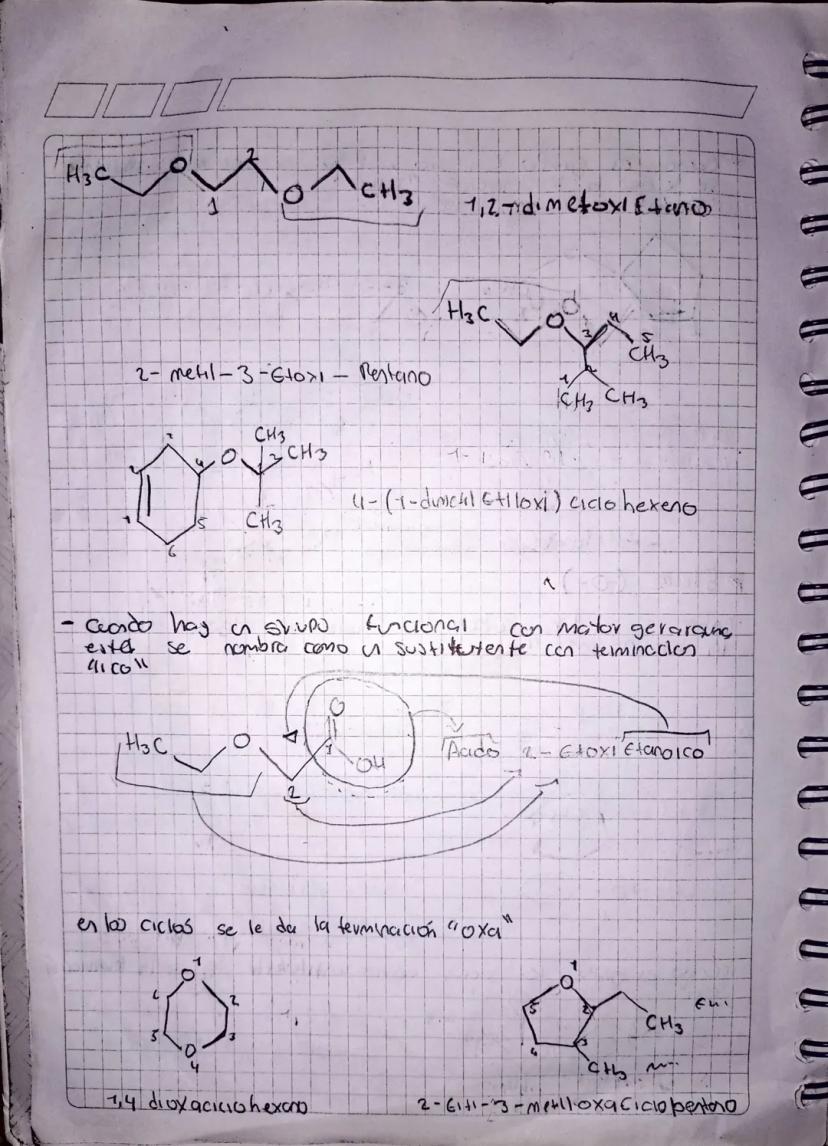 H3C O 2 1 O CH3 1,2-dimetoxi Etano
H3C O 3 4 5 CH3
2 1 CH3 CH3
2-metil-3-Etoxi-Pentano
CH3
4 O 2 CH3
CH3
5
6
4-(1-dimetil Etiloxi) ciclohexeno
- Cuando hay un grupo funcional con mayor gerarquia
este se nombra como un sustituyente con terminacion
"ico"
O
H3C O 1 OH Acido 2-Etoxi Etanoico
2
en los ciclos se le da la terminación "oxa"
1
O
6 2
5 3
O
4
1
O
5 2 CH3 Eti.
4 3
CH3
1,4 dioxaciclohexano
2-Etil-3-metil-oxaCiclopentano